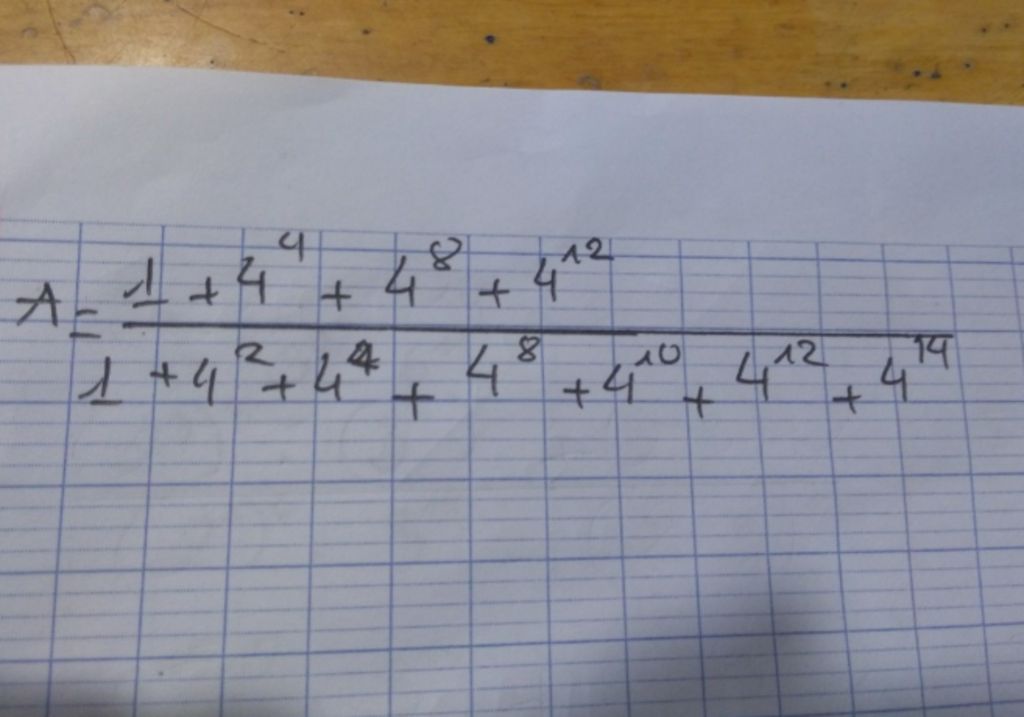 A = 1 + 4^4 + 4^8 + 4^12
1 + 4^2 + 4^4 + 4^8 + 4^10 + 4^12 + 4^14